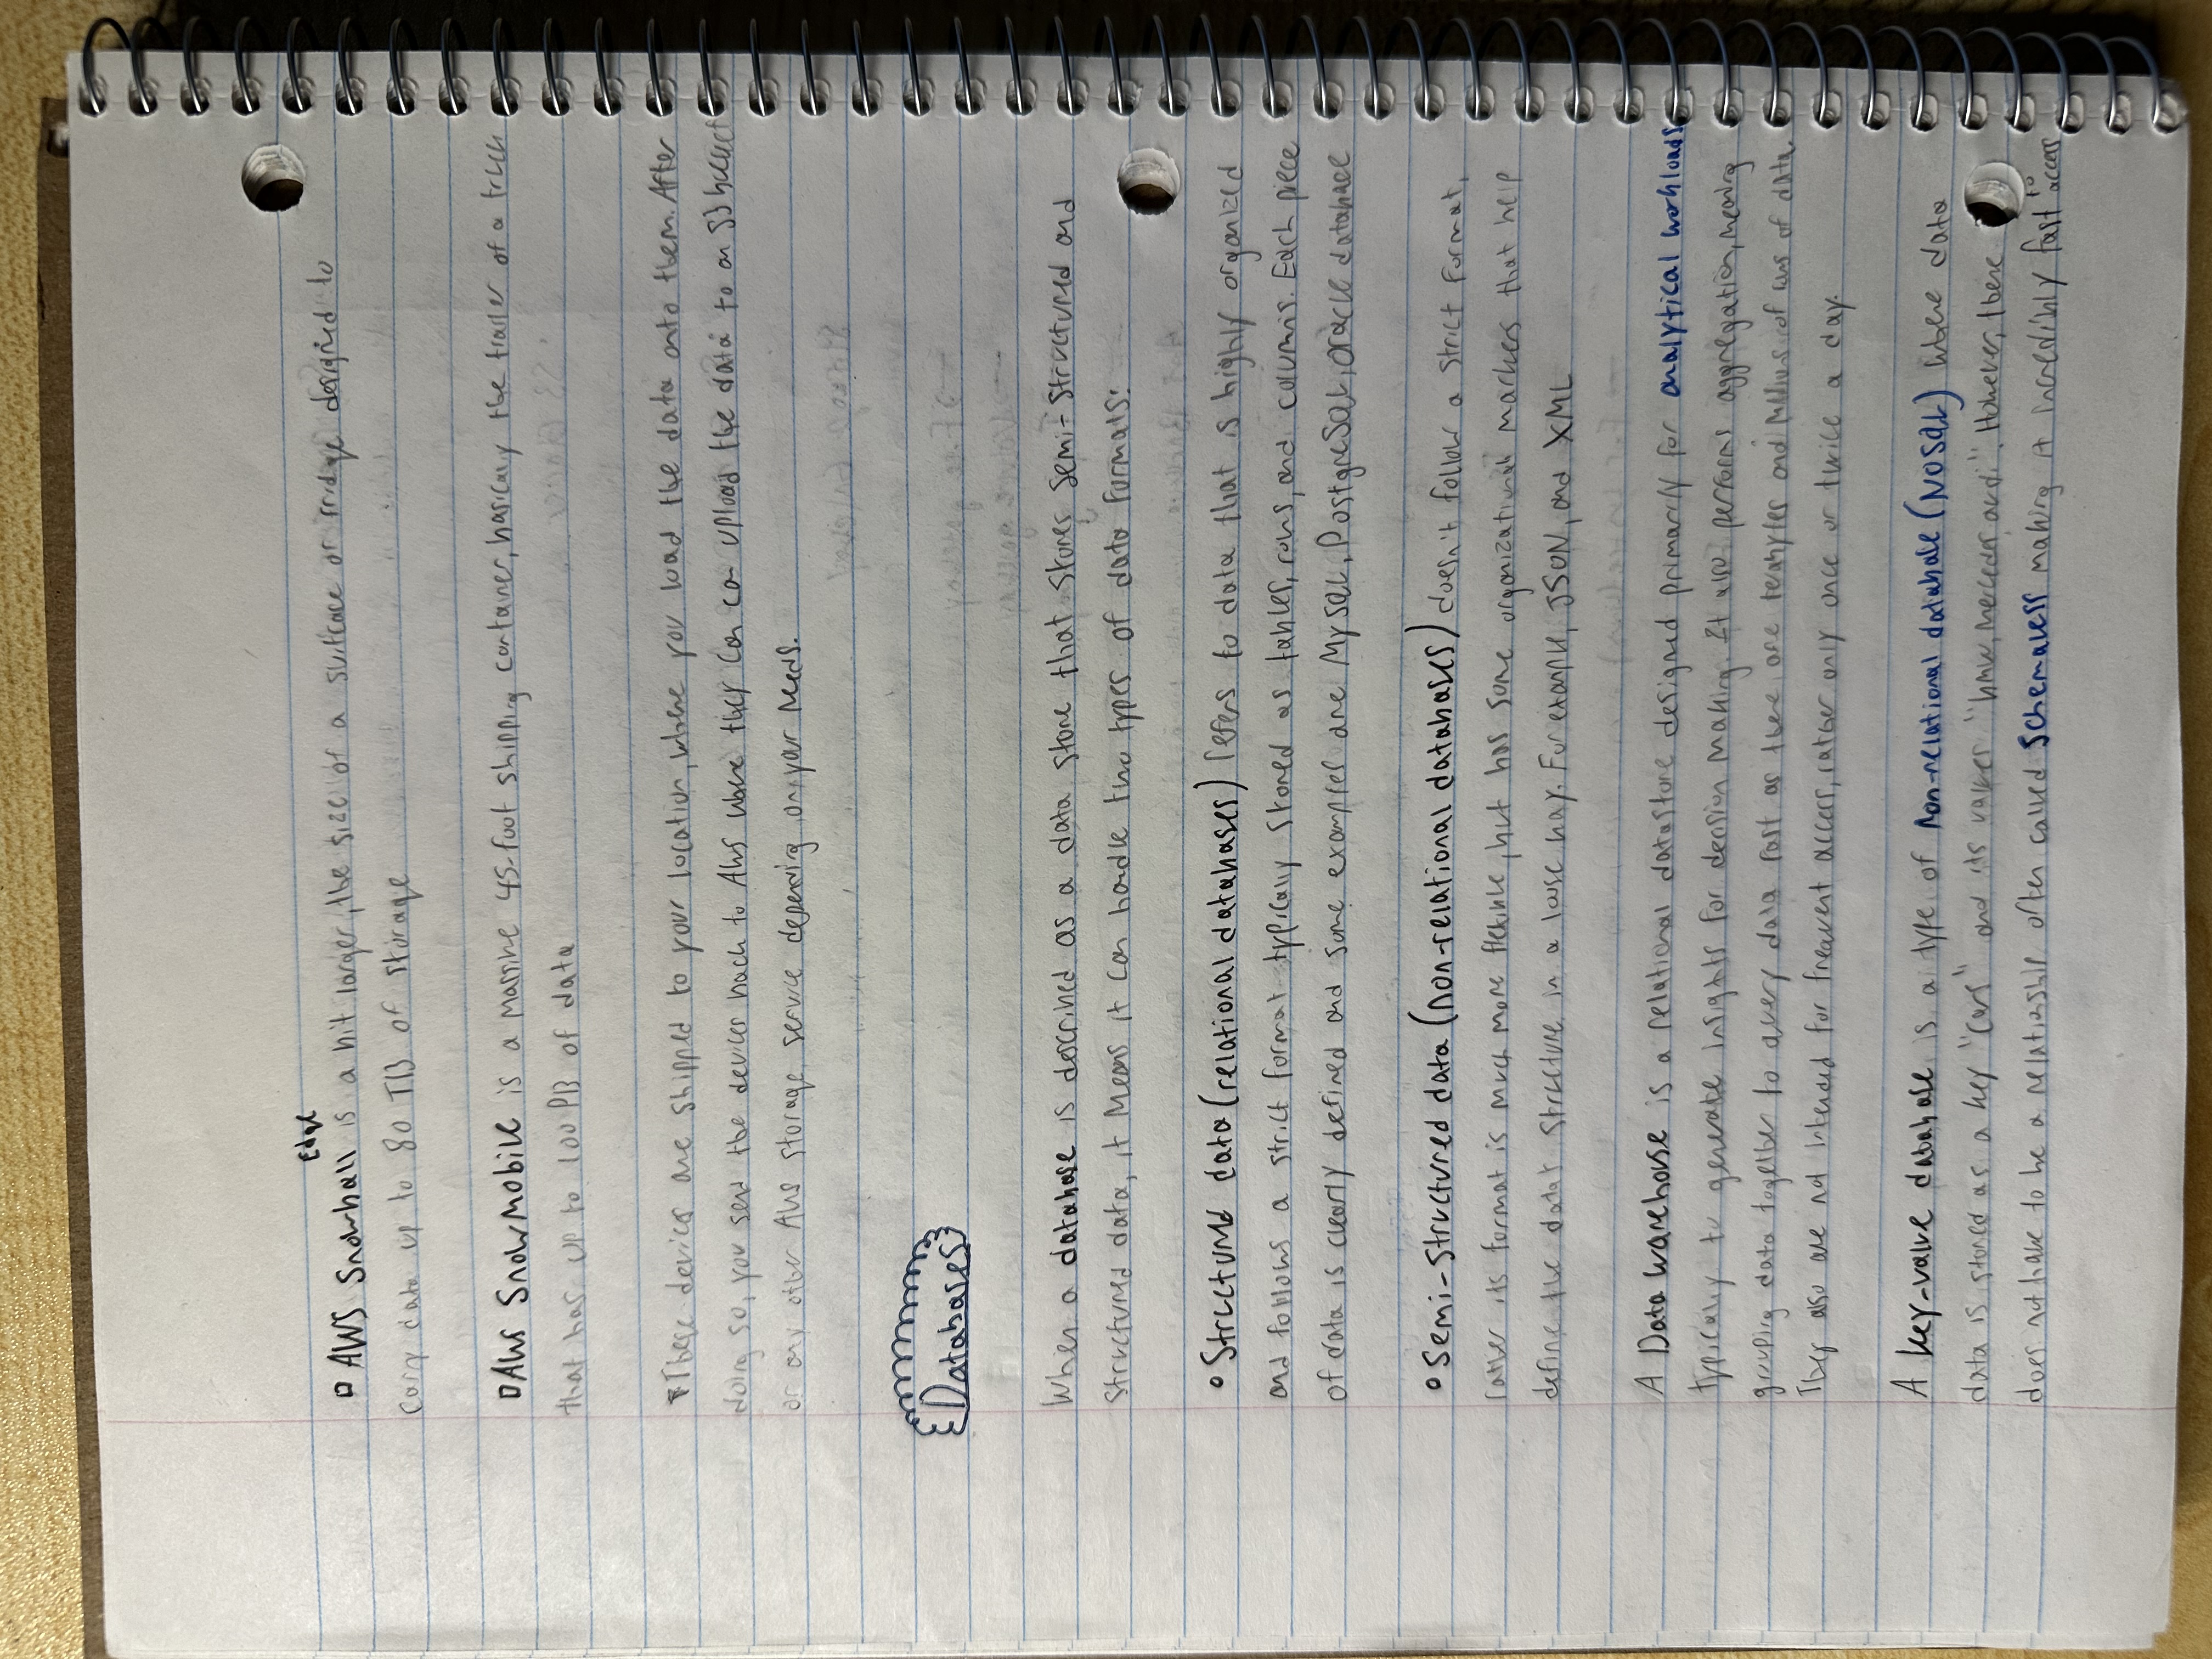 Edge
▫ AWS Snowball is a bit larger, the size of a suitcase or fridge designed to
carry data up to 80 TB of storage
▫ AWS Snowmobile is a massive 45-foot shipping container, basically the trailer of a truck
that has up to 100 PB of data
These devices are shipped to your location, where you load the data onto them. After
doing so, you send the devices back to AWS where they can can upload the data to an S3 bucket
or any other AWS storage service depending on your needs.
Databases
When a database is described as a data store that stores semi-structured and
structured data, it means it can handle two types of data formats:
• Structured data (relational databases) refers to data that is highly organized
and follows a strict format typically stored as tables, rows, and columns. Each piece
of data is clearly defined and some examples are MySQL, PostgreSQL, Oracle database
• Semi-structured data (non-relational databases) doesn't follow a strict format,
rather its format is much more flexible, but has some organizational markers that help
define the data's structure in a loose way. For example, JSON, and XML
A Data warehouse is a relational datastore designed primarily for analytical workloads
typically to generate insights for decision making. It also performs aggregation, meaning
grouping data together to query data fast as there are terabytes and millions of rows of data.
They also are not intended for frequent access, rather only once or twice a day.
A key-value database is a type of non-relational database (NOSQL) where data
data is stored as a key "cars" and its values "bmw, mercedes, audi". However, there
does not have to be a relationship often called schemaless making it incredibly fast to access